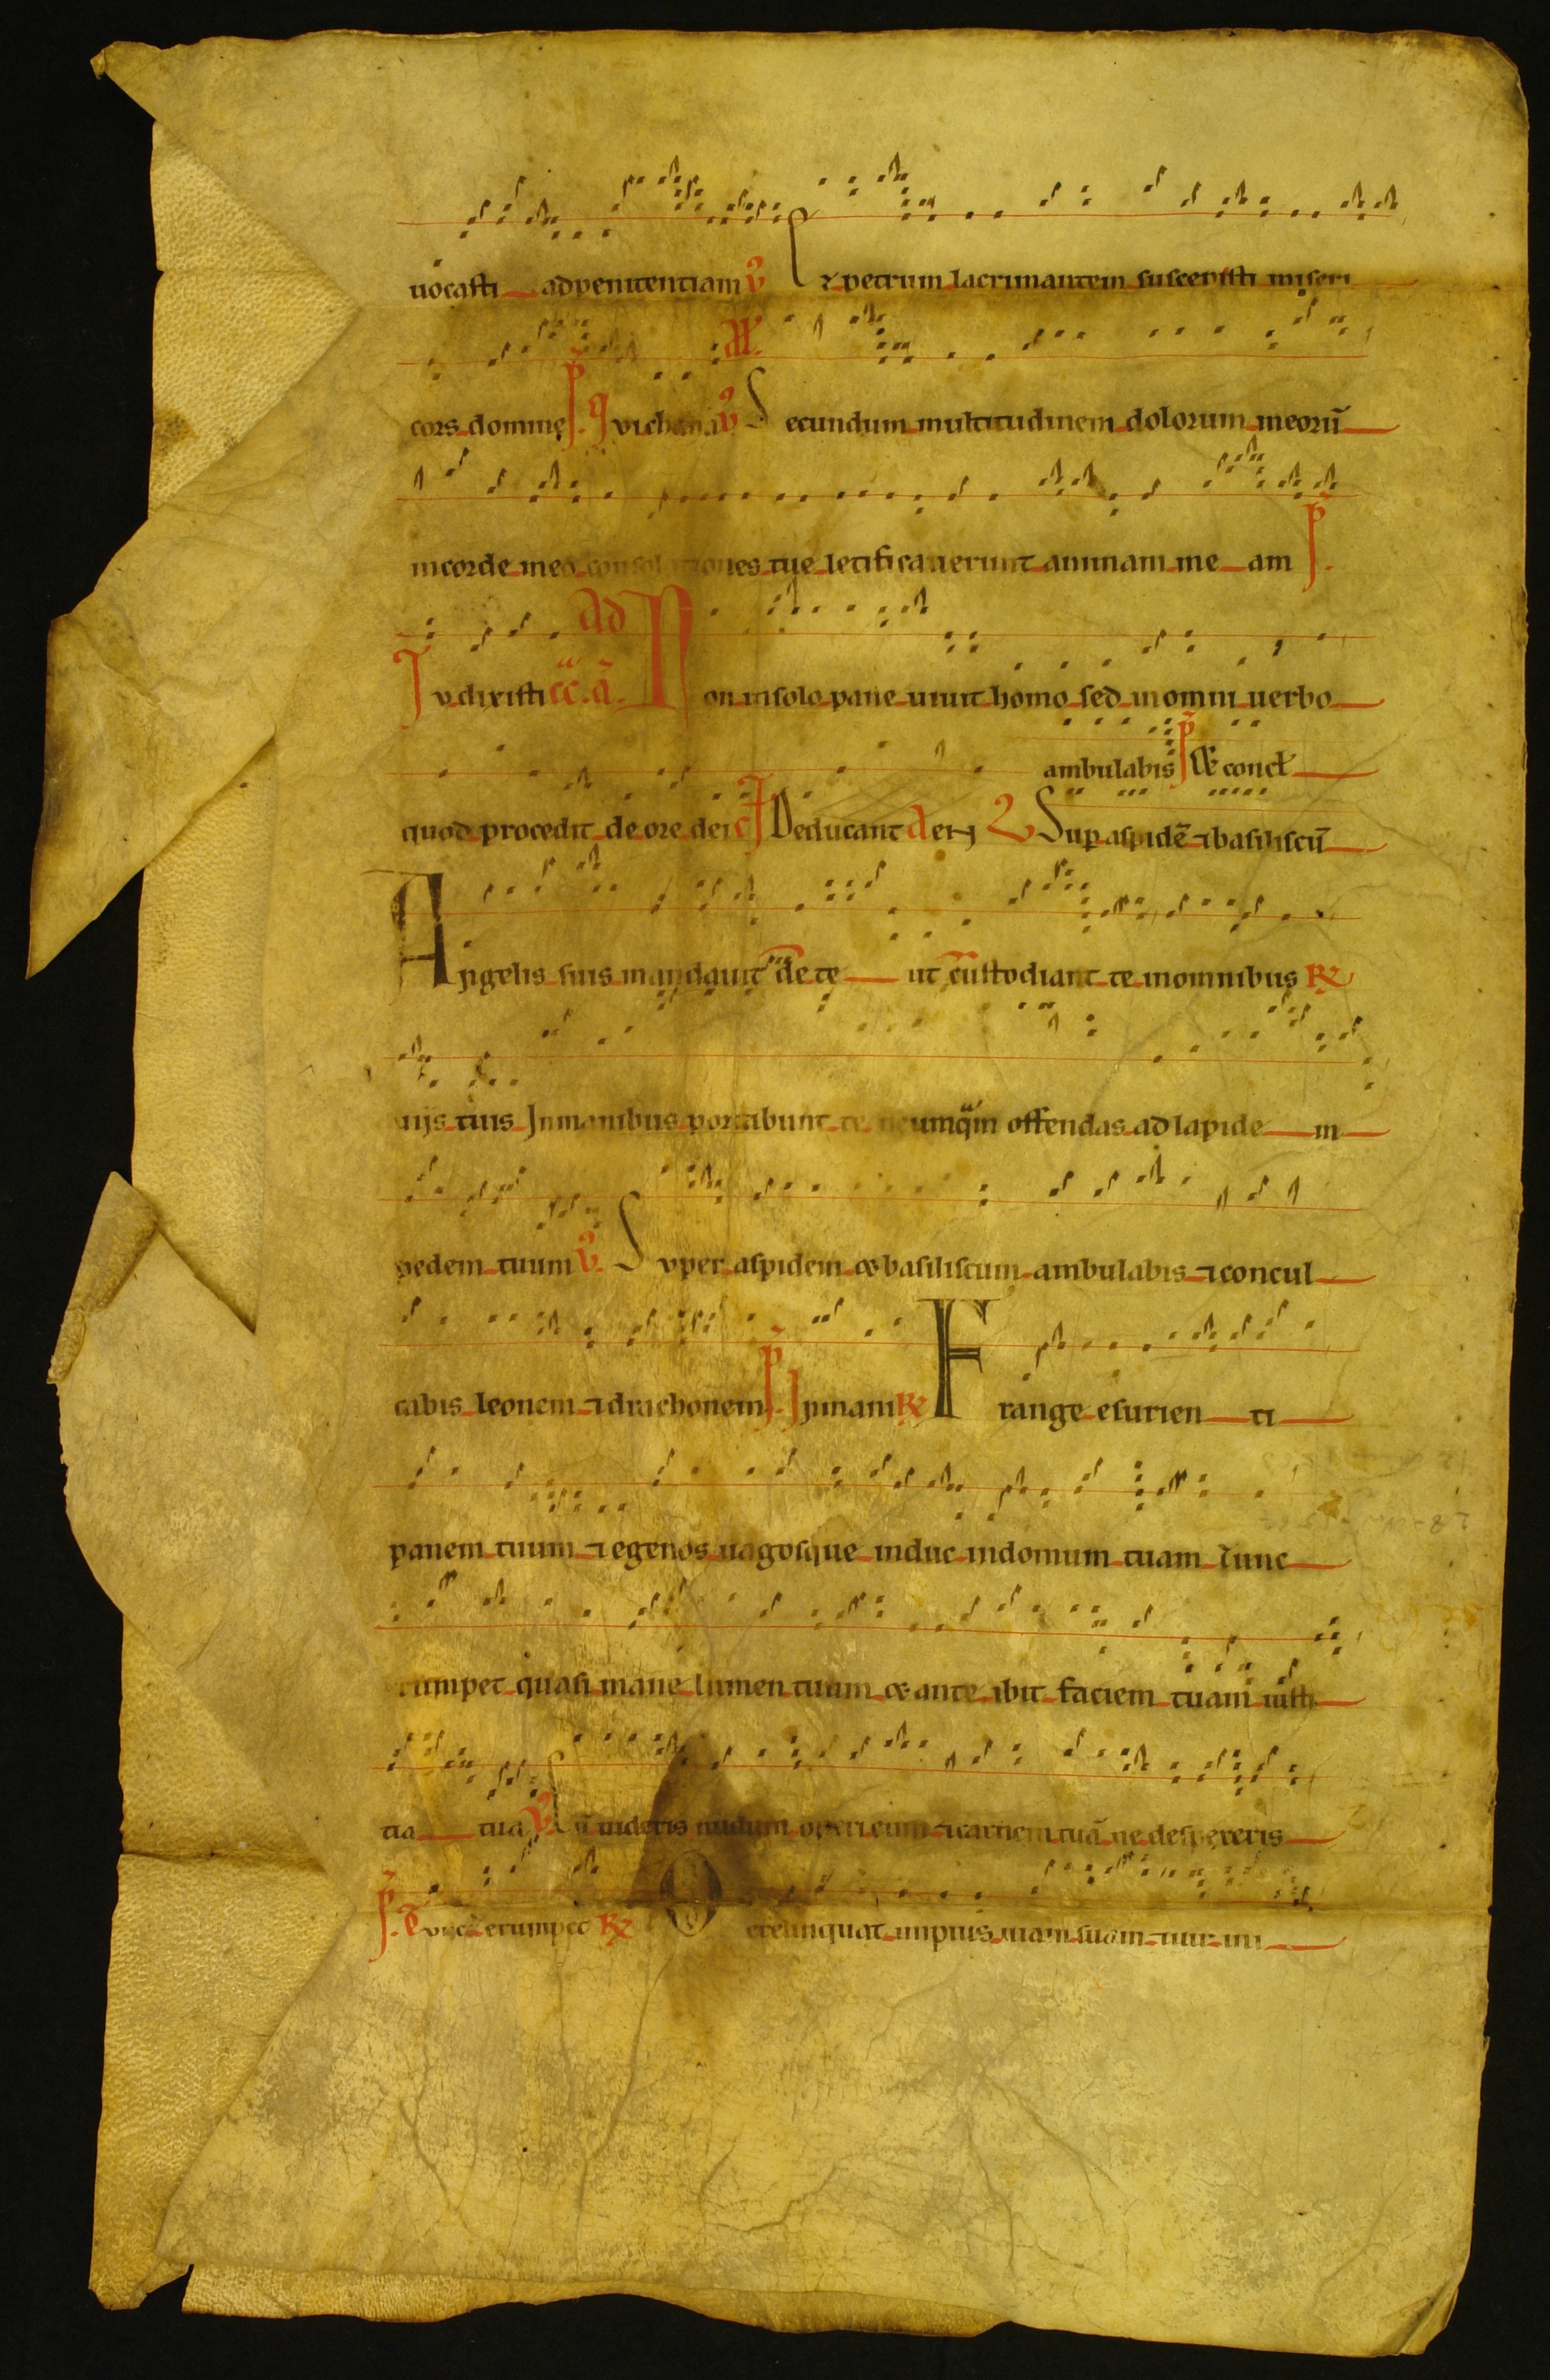 uocasti ad penitentiam v̄ Et petrum lacrimantem suscepisti miseri
cors domine p̄ Qui chana
v̄ Secundum multitudinem dolorum meorū
in corde meo consolationes tue letificauerunt animam me am p̄
Tu dixisti Ad cc. a. Non in solo pane uiuit homo sed in omni uerbo
ambulabis p̄ Et concl
quod procedit de ore dei Deducant Sup aspidē ⁊ basiliscū
Angelis suis mandauit de te ut custodiant te in omnibus R
uijs tuis In manibus portabunt te ne umqm offendas ad lapide m
pedem tuum v̄ Super aspidem & basiliscum ambulabis ⁊ concul
cabis leonem ⁊ drachonem p̄ In mani R Frange esurien ti
panem tuum ⁊ egenos uagosque induc in domum tuam Tunc
rumpet quasi mane lumen tuum & ante ibit faciem tuam iusti
tia tua v̄ Cū uideris nudum operi eum ⁊ carnem tuā ne despexeris
p̄ Tunc erumpet R Derelinquat impius uiam suam ⁊ uir ini